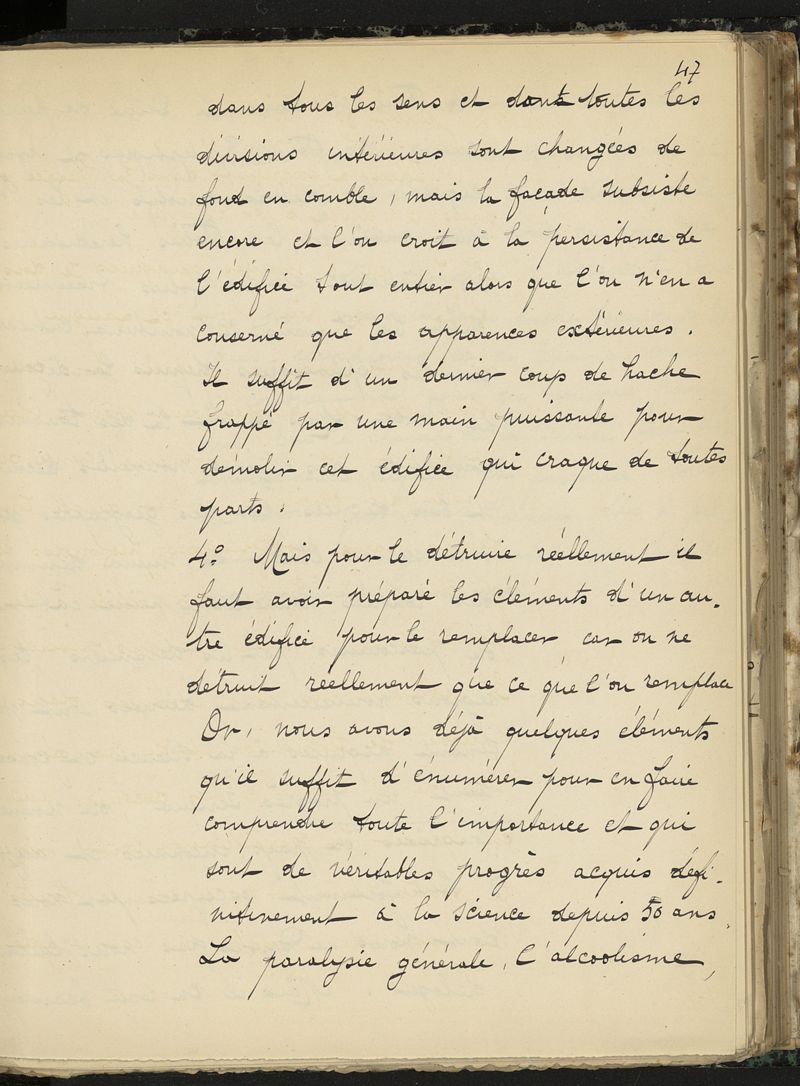 47
dans tous les sens et dont toutes les
divisions intérieures sont changées de
fond en comble, mais la façade subsiste
encore et l'on croit à la persistance de
l'édifice tout entier alors que l'on n'en a
conservé que les apparences extérieures.
Il suffit d'un dernier coup de hache
frappé par une main puissante pour
démolir cet édifice qui craque de toutes
parts.
4.° Mais pour le détruire réellement il
faut avoir préparé les éléments d'un au-
tre édifice pour le remplacer car on ne
détruit réellement que ce que l'on remplace
Or, nous avons déjà quelques éléments
qu'il suffit d'énumérer pour en faire
comprendre toute l'importance et qui
sont de véritables progrès acquis défi-
nitivement à la science depuis 50 ans.
La paralysie générale, l'alcoolisme,